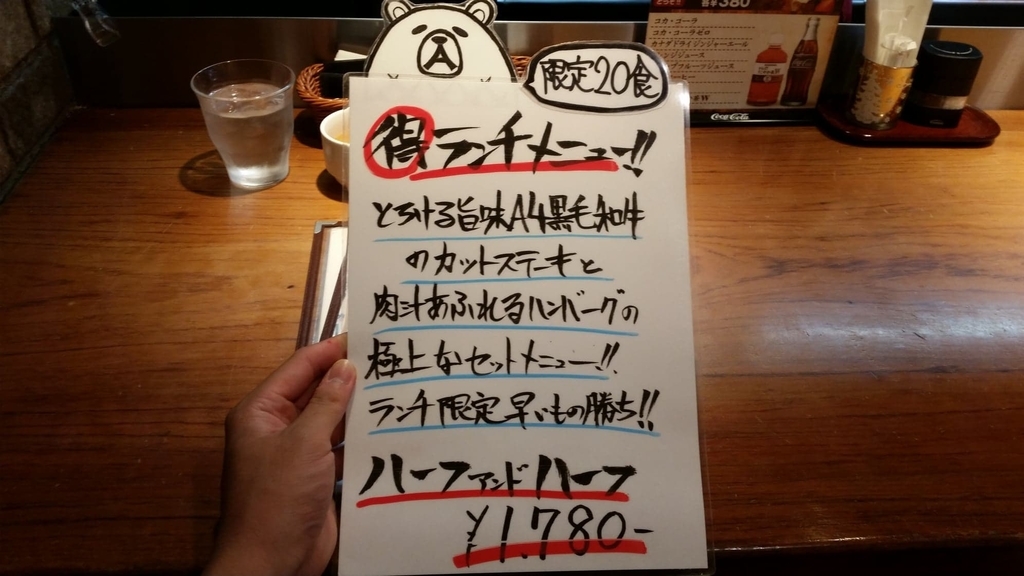 限定20食
得ランチメニュー!!
とろける旨味A4黒毛和牛
のカットステーキと
肉汁あふれるハンバーグの
極上なセットメニュー!!
ランチ限定早いもの勝ち!!
ハーフアンドハーフ
¥1.780-
380
コカ・コーラ
コカ・コーラゼロ
カナダドライジンジャーエール
Coca-Cola